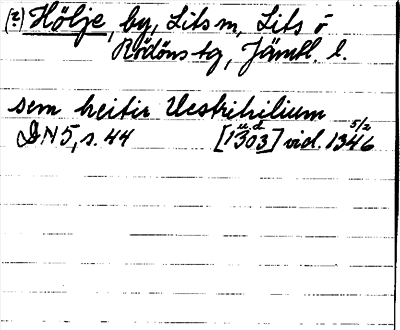 (?) Hölje, by, Lits sn, Lits o
Rödöns tg, Jämtl. l.
sem heitir Uestrihilium
DN 5, s. 44 [1303] u.d. vid. 1346 5/2